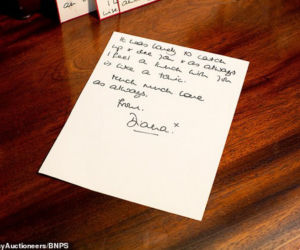 It was lovely to catch
up & see you & as always
I feel a lunch with you
is like a tonic.
Much much love
as always.
from.
Diana. x
yAuctioneers/BNPS